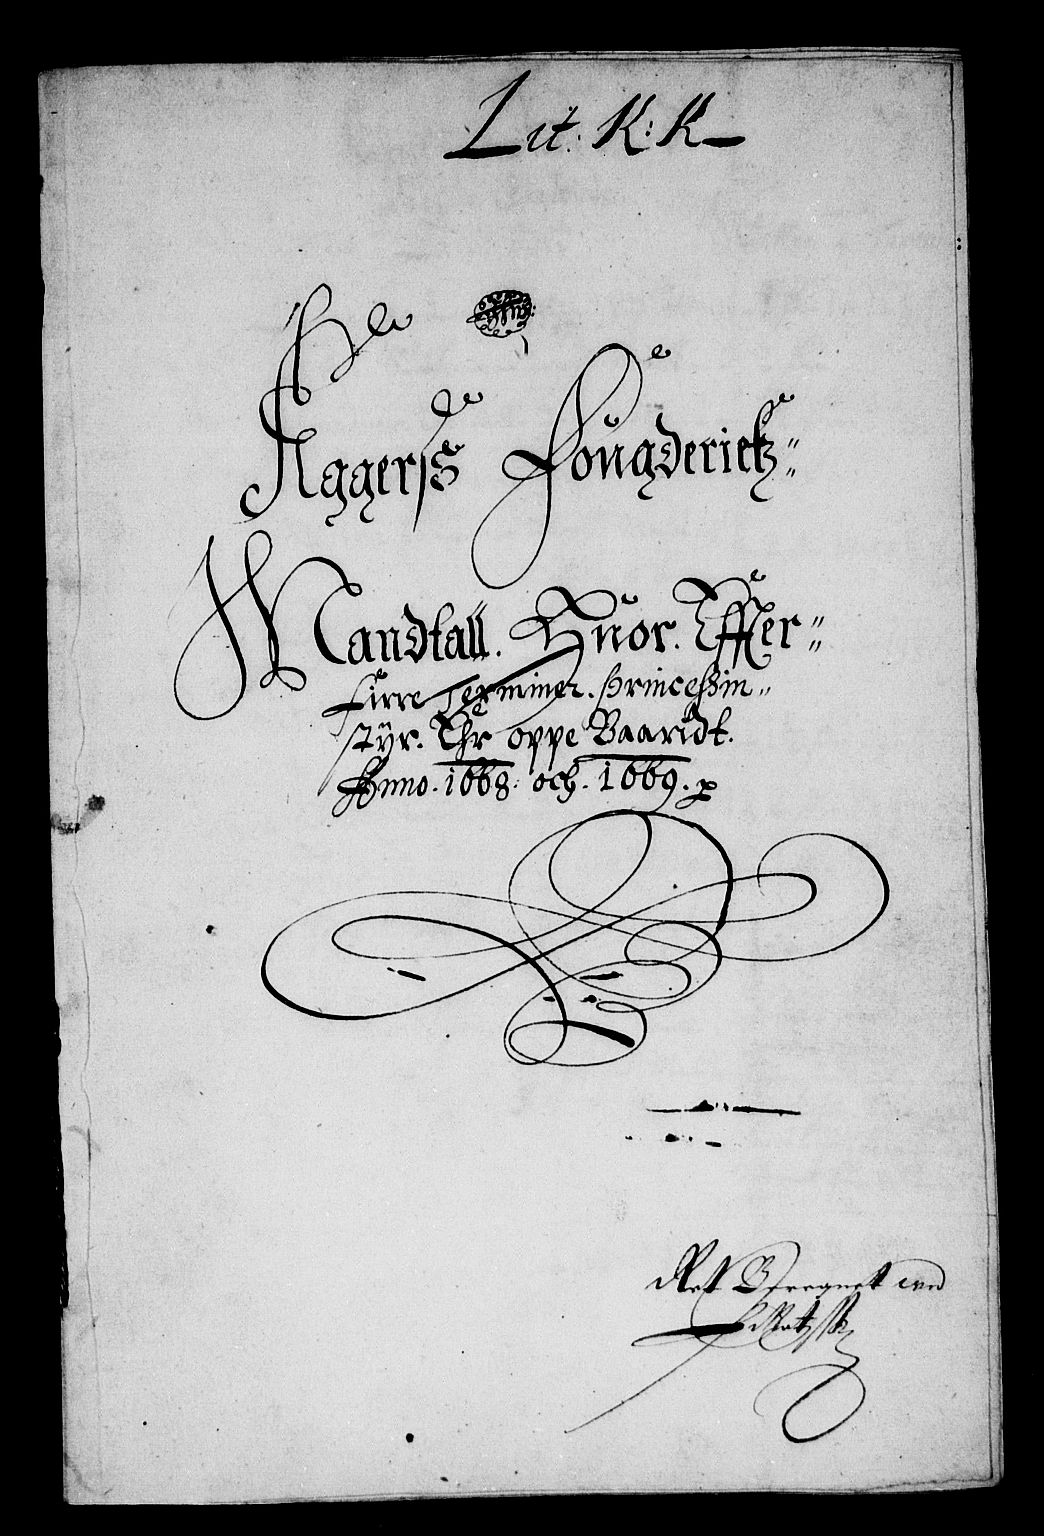 Lit. K: K
Aggerss Fougderietz„
Mandtall. Huor. Effter„
fiire Terminer. Princeßin„
styr. Ehr oppe Baaridt.
Anno. 1668. och. 1669. p
Ret Beregnet